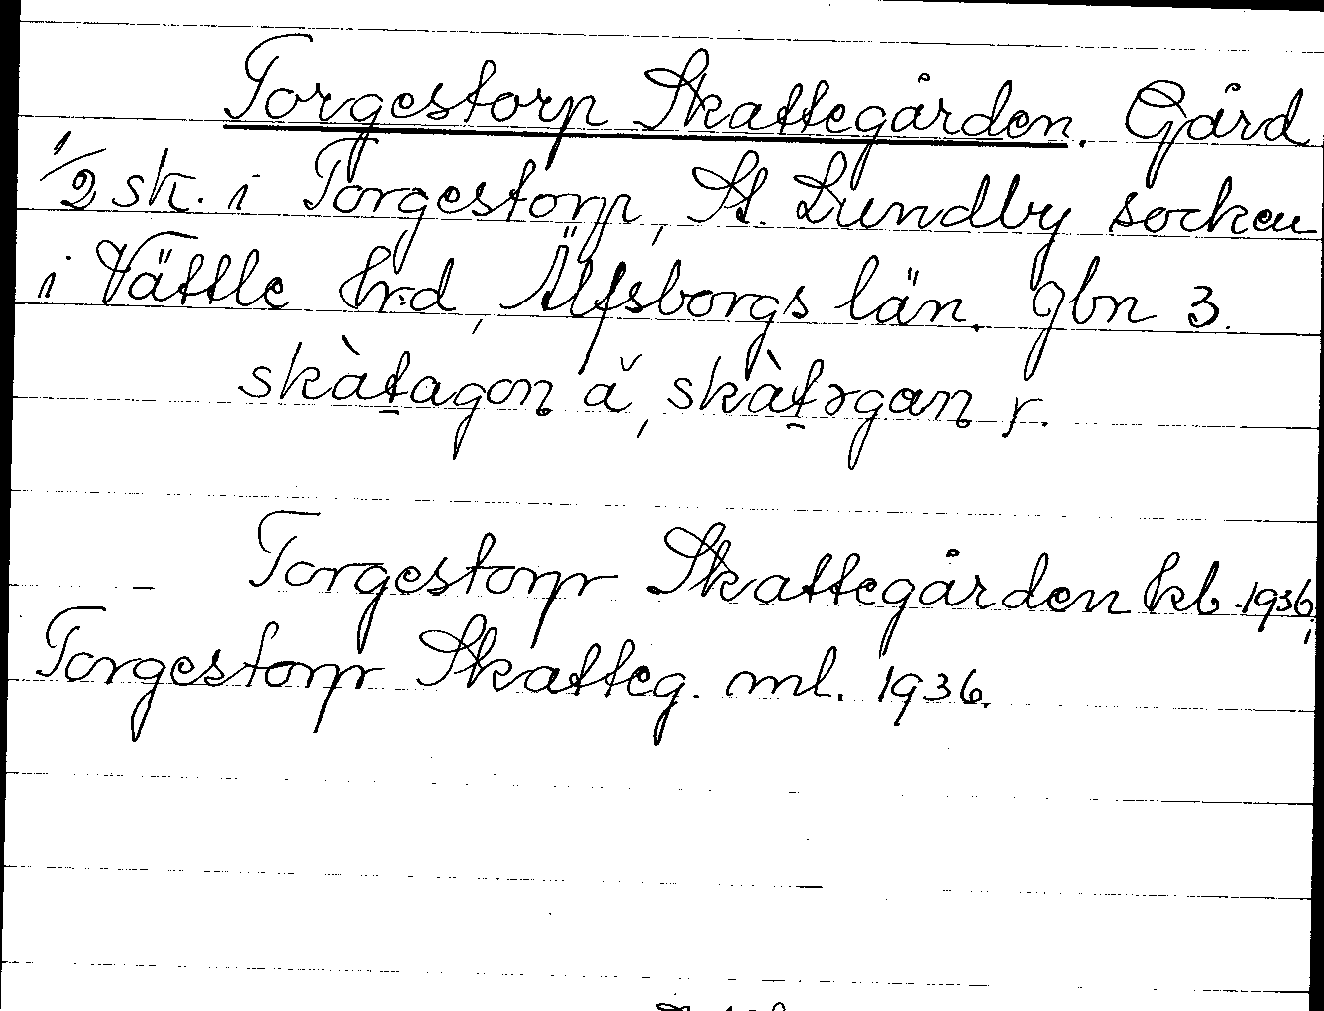 Torgestorp Skattegården. Gård
1/2 sk. i Torgestorp, St. Lundby socken
i Vättle hrd, Älfsborgs län. Jbn 3.
skàt̠agon ǎ, skàt̠rgan r.
Torgestorp Skattegården kb 1936;
Torgestorp Skatteg. ml. 1936.